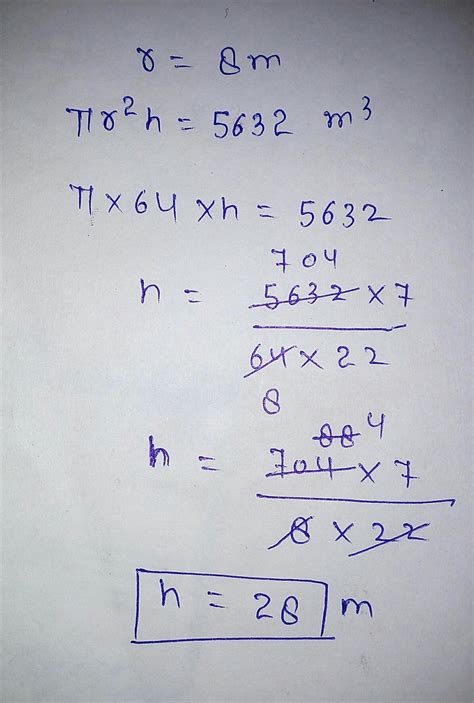 r = 8m
πr²h = 5632 m³
π × 64 × h = 5632
704
h = 5632 × 7
64 × 22
8
88 4
h = 704 × 7
8 × 22
h = 28 m